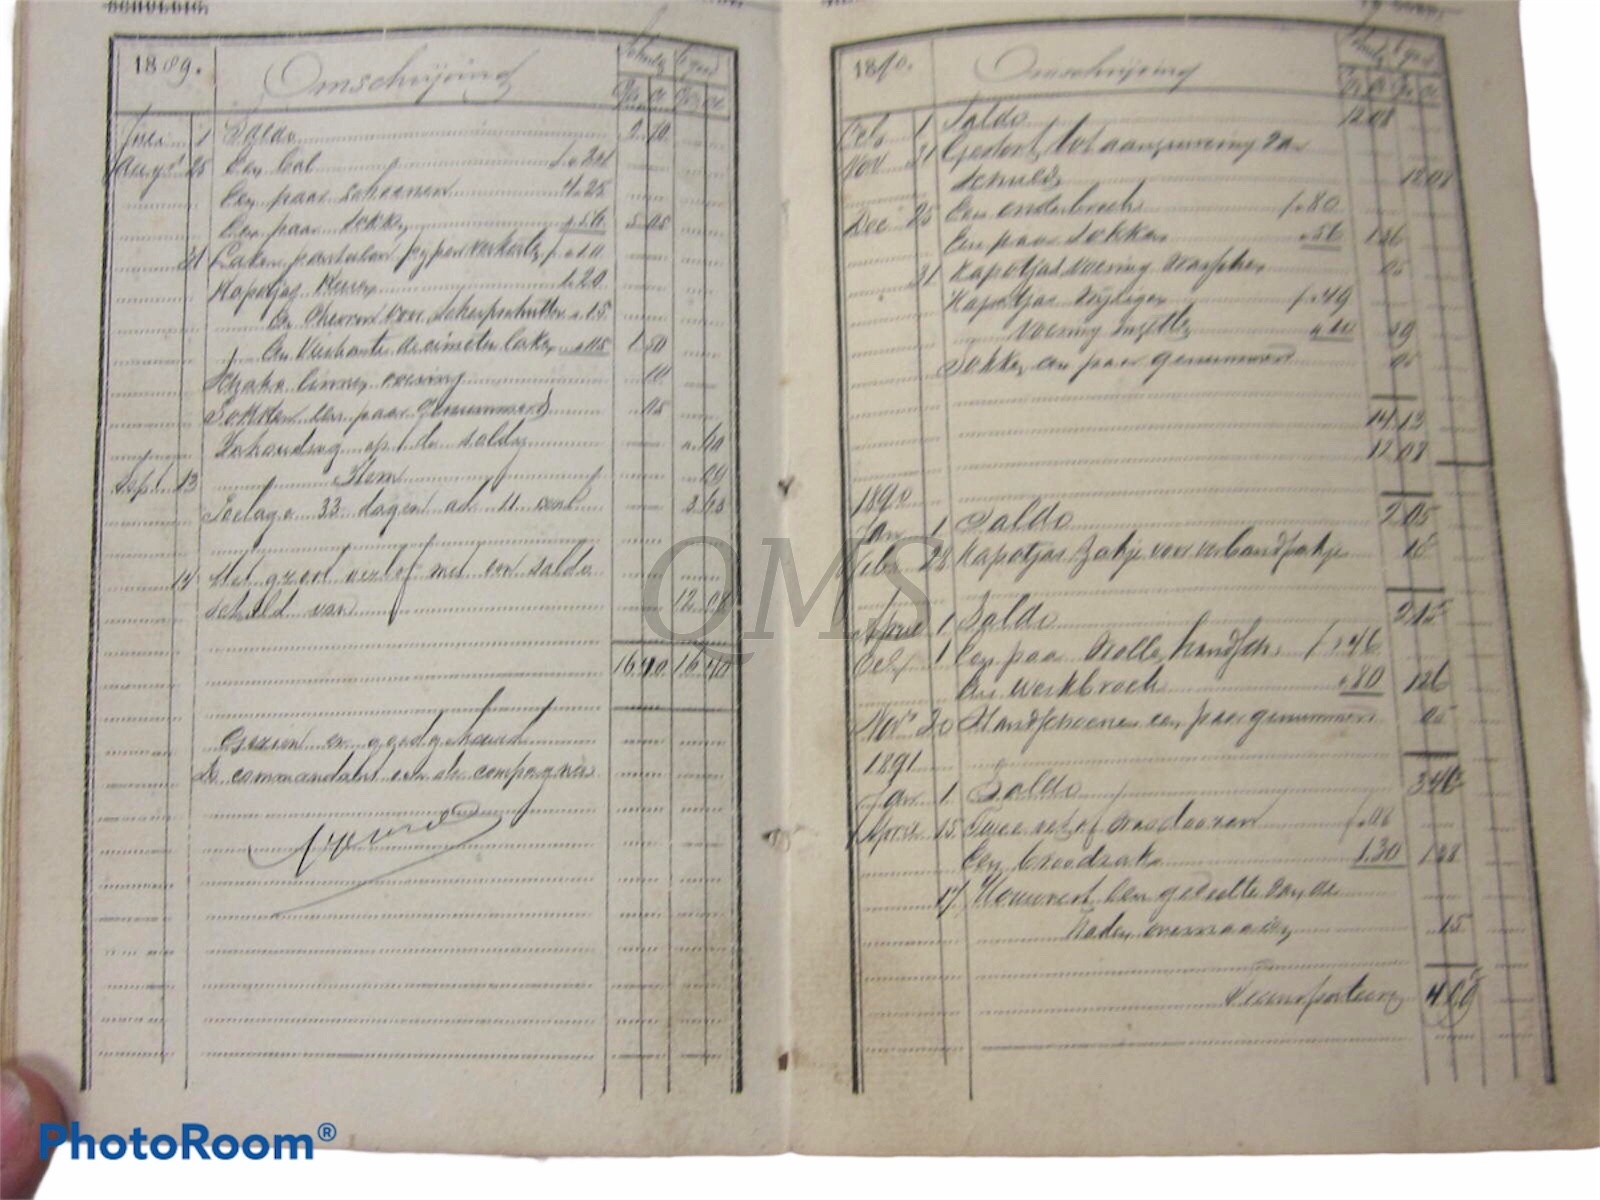 1889.
Omschrijving
Schuld Tgoed
Juli 1 Saldo 2 70
Aug 25 Een
Een paar schoenen 4.25
Een paar sokken 56
31 Laken pantalon pijpen 10
Kapotjas 1.20
Een chevron voor scherpschutter 15
Een vierkante decimeter laken 05 1 50
linnen voering 10
Sokken een paar genummerd 05
Inhouding op de soldij 40
Sept. 13 Item
Toelage 33 dagen ad 11 cent 3 63
14 Met groot verlof met een saldo
schuld van 12 08
16 40 16 40
Gezien en goedgekeurd
De commandant van de compagnie
1890.
Omschrijving
Oct. 1 Saldo 12 08
Nov 21 Gestort tot aanzuivering zijner
schuld 12 08
Dec 25 Een onderbroek f " 80
Een paar sokken " 56 1 36
31 Kapotjas voering 05
Kapotjas f " 49
voering
Sokken een paar genummerd 05
14 13
12 08
1890
Jan 1 Saldo 2 05
Febr 28 Kapotjas Zakje voor verbandpakje 10
April 1 Saldo 2 15
Oct 1 Een paar wollen handsch. f " 46
Een werkbroek " 80 1 26
Nov 20 Handschoenen een paar genummerd 05
1891
Jan 1 Saldo 3 46
April 15 Twee f " 08
Een broodzak 1.30 1 38
17 een gedeelte van de
naden 15
Transporteeren
QMS
PhotoRoom®